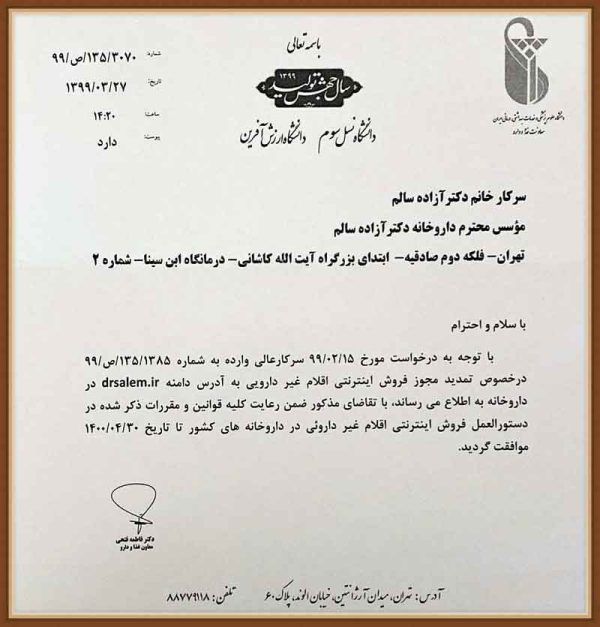 باسمه تعالی
سال جهش تولید
۱۳۹۹
دانشگاه نسل سوم دانشگاه ارزش آفرین
شماره: ۹۹/ص/۱۳۵/۳۰۷۰
تاریخ: ۱۳۹۹/۰۳/۲۷
ساعت: ۱۴:۲۰
پیوست: دارد
دانشگاه علوم پزشکی و خدمات بهداشتی درمانی ایران
معاونت غذا و دارو
سرکار خانم دکتر آزاده سالم
مؤسس محترم داروخانه دکتر آزاده سالم
تهران- فلکه دوم صادقیه- ابتدای بزرگراه آیت الله کاشانی- درمانگاه ابن سینا- شماره ۲
با سلام و احترام
با توجه به درخواست مورخ ۹۹/۰۲/۱۵ سرکارعالی وارده به شماره ۹۹/ص/۱۳۵/۱۳۸۵
درخصوص تمدید مجوز فروش اینترنتی اقلام غیر دارویی به آدرس دامنه drsalem.ir در
داروخانه به اطلاع می رساند، با تقاضای مذکور ضمن رعایت کلیه قوانین و مقررات ذکر شده در
دستورالعمل فروش اینترنتی اقلام غیر داروئی در داروخانه های کشور تا تاریخ ۱۴۰۰/۰۴/۳۰
موافقت گردید.
دکتر فاطمه فتحی
معاون غذا و دارو
آدرس: تهران، میدان آرژانتین، خیابان الوند، پلاک ۶۰ تلفن: ۸۸۷۷۹۱۱۸